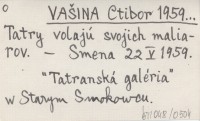 VAŠINA Ctibor 1959...
Tatry volajú svojich malia-
rov. - Smena 22 V 1959.
"Tatranská galéria"
w Starym Smokowcu.